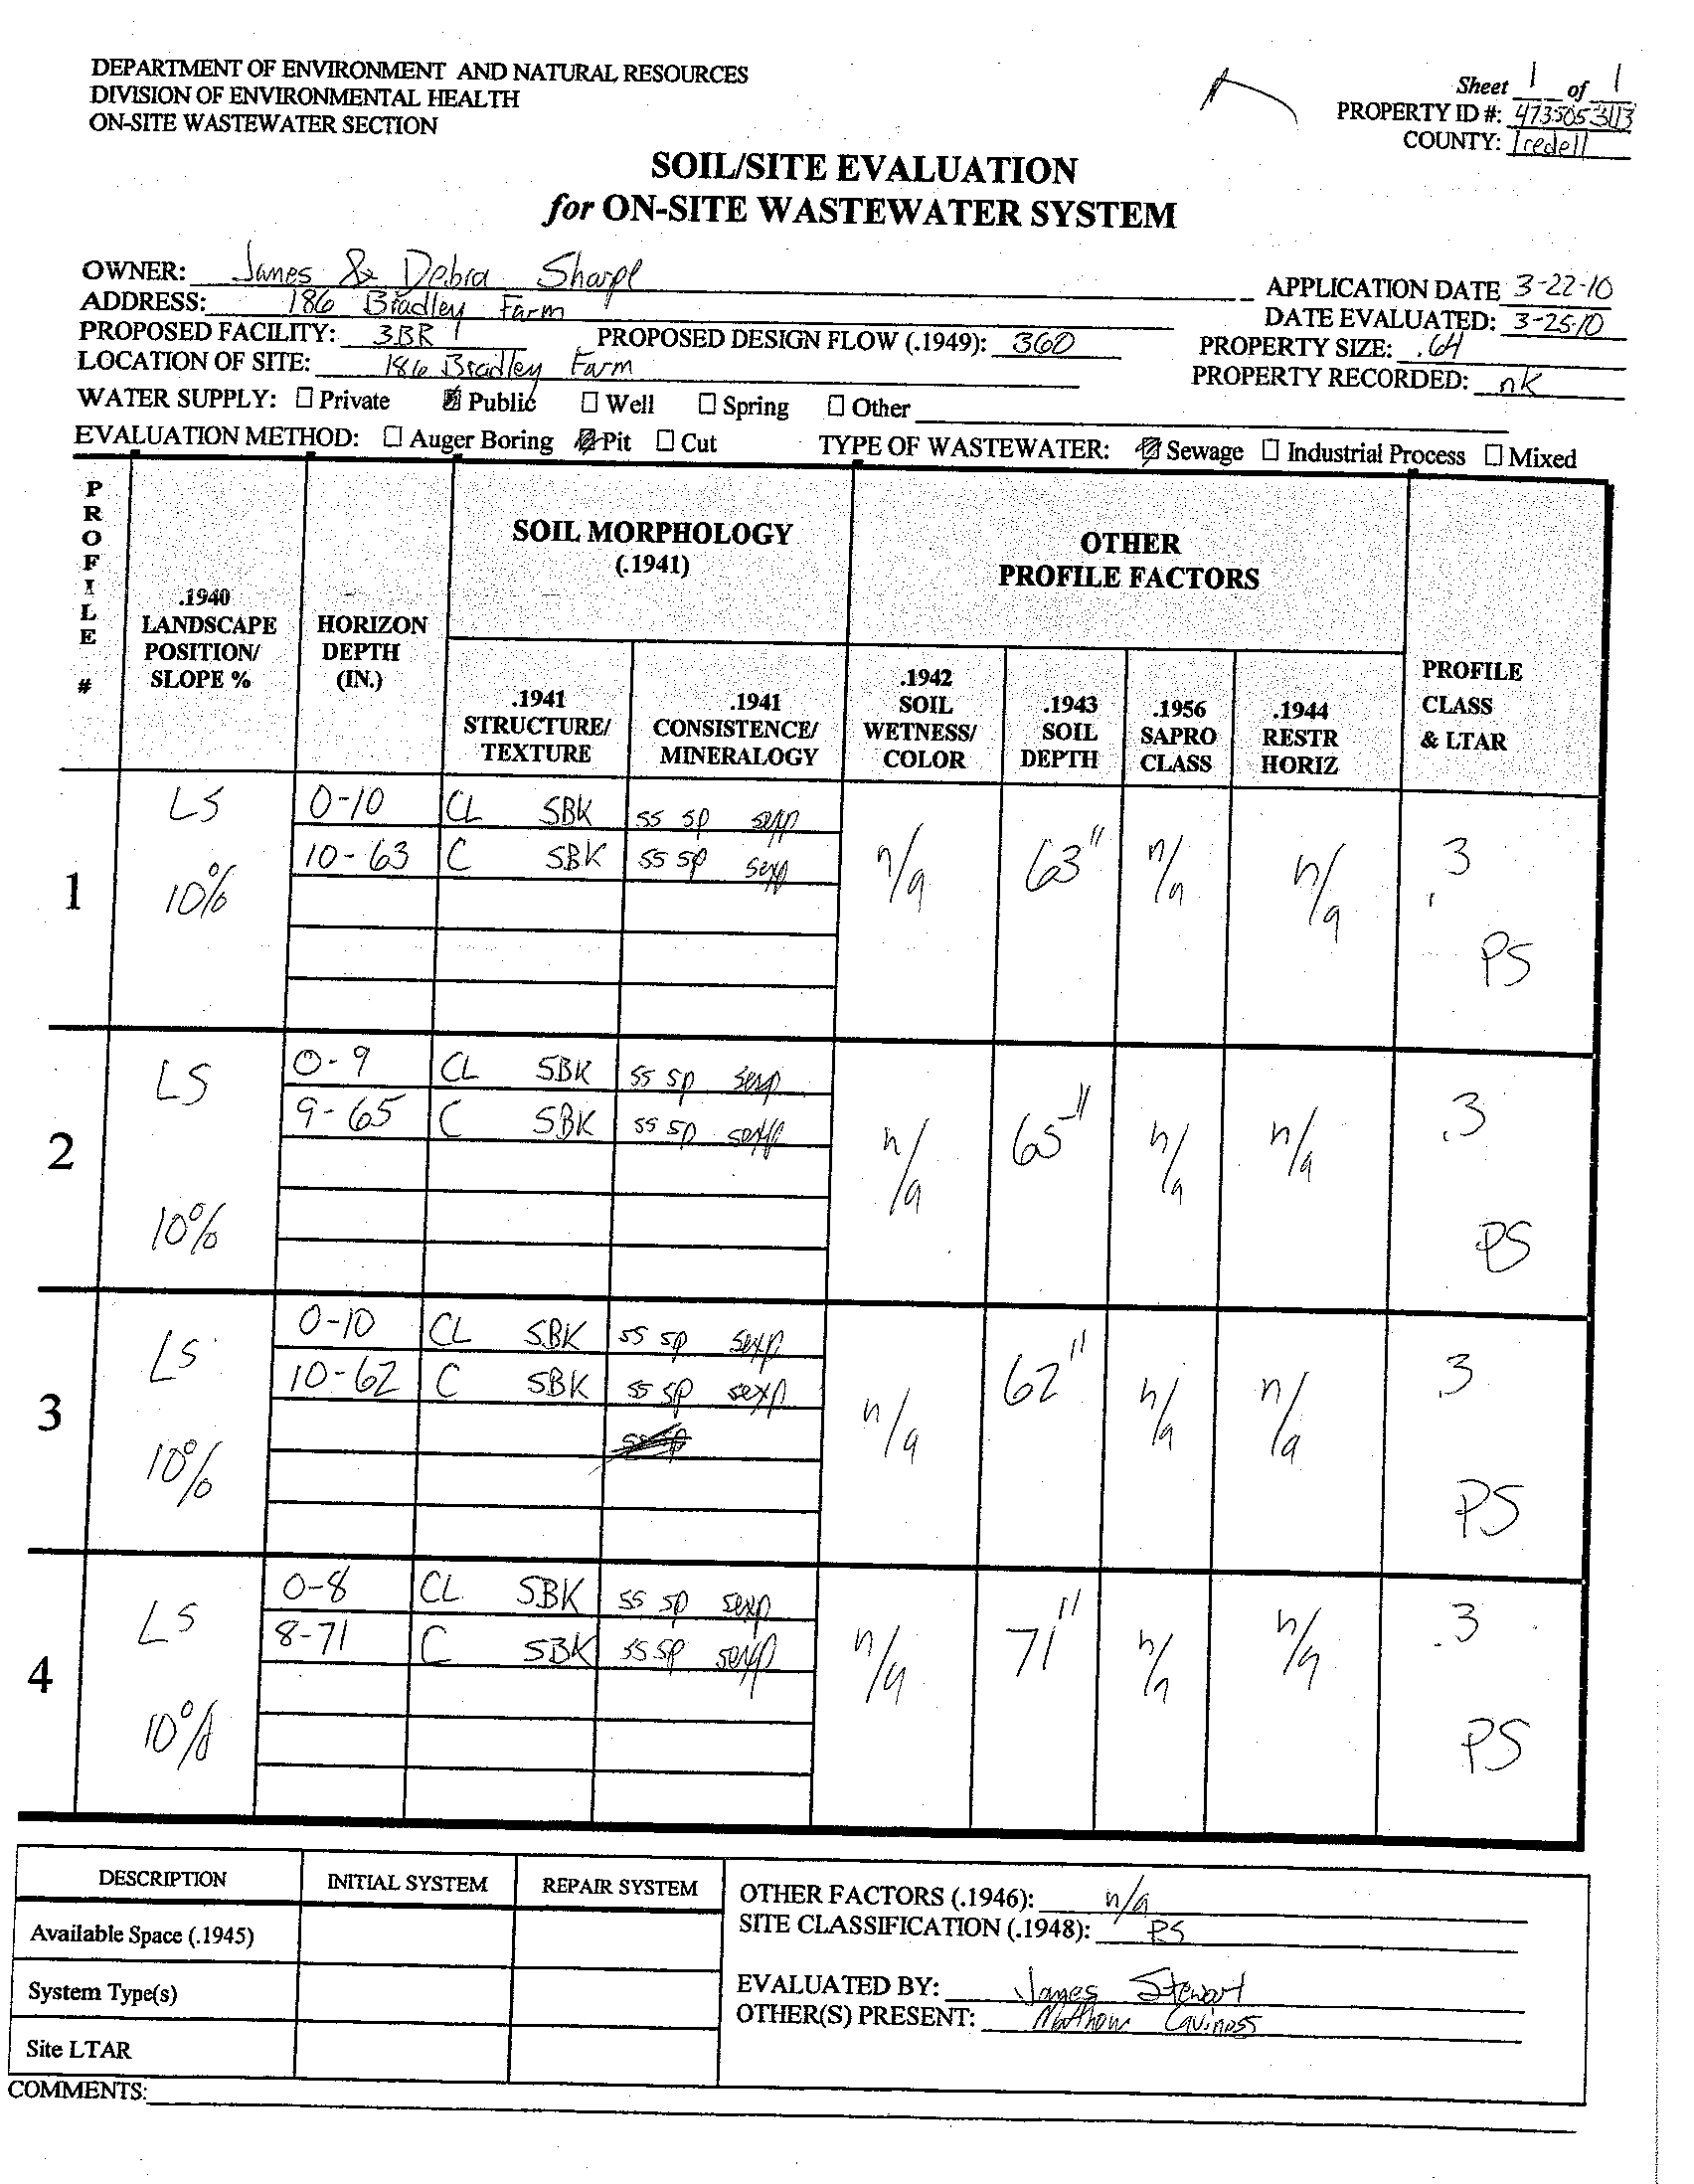 DEPARTMENT OF ENVIRONMENT AND NATURAL RESOURCES
DIVISION OF ENVIRONMENTAL HEALTH
ON-SITE WASTEWATER SECTION
Sheet 1 of 1
PROPERTY ID #:
COUNTY: Iredell
SOIL/SITE EVALUATION
for ON-SITE WASTEWATER SYSTEM
OWNER: James & Debra Sharpe
ADDRESS: 186 Bradley Farm
APPLICATION DATE 3-22-10
DATE EVALUATED: 3-25-10
PROPOSED FACILITY: 3BR PROPOSED DESIGN FLOW (.1949): 360 PROPERTY SIZE: .64
LOCATION OF SITE: 186 Bradley Farm PROPERTY RECORDED: nk
WATER SUPPLY: ☐ Private ☒ Public ☐ Well ☐ Spring ☐ Other
EVALUATION METHOD: ☐ Auger Boring ☒ Pit ☐ Cut TYPE OF WASTEWATER: ☒ Sewage ☐ Industrial Process ☐ Mixed
PROFILE #
.1940 LANDSCAPE POSITION/ SLOPE %
HORIZON DEPTH (IN.)
SOIL MORPHOLOGY (.1941)
OTHER PROFILE FACTORS
.1941 STRUCTURE/ TEXTURE
.1941 CONSISTENCE/ MINERALOGY
.1942 SOIL WETNESS/ COLOR
.1943 SOIL DEPTH
.1956 SAPRO CLASS
.1944 RESTR HORIZ
PROFILE CLASS & LTAR
1 LS 10%
0-10 CL SBK ss sp sexp
10-63 C SBK ss sp sexp
n/a 63" n/a n/a .3 PS
2 LS 10%
0-9 CL SBK ss sp sexp
9-65 C SBK ss sp sexp
n/a 65" n/a n/a .3 PS
3 LS 10%
0-10 CL SBK ss sp sexp
10-62 C SBK ss sp sexp
n/a 62" n/a n/a .3 PS
4 LS 10%
0-8 CL SBK ss sp sexp
8-71 C SBK ss sp sexp
n/a 71" n/a n/a .3 PS
DESCRIPTION INITIAL SYSTEM REPAIR SYSTEM
Available Space (.1945)
System Type(s)
Site LTAR
OTHER FACTORS (.1946): n/a
SITE CLASSIFICATION (.1948): PS
EVALUATED BY: James Stewart
OTHER(S) PRESENT: Caviness
COMMENTS: